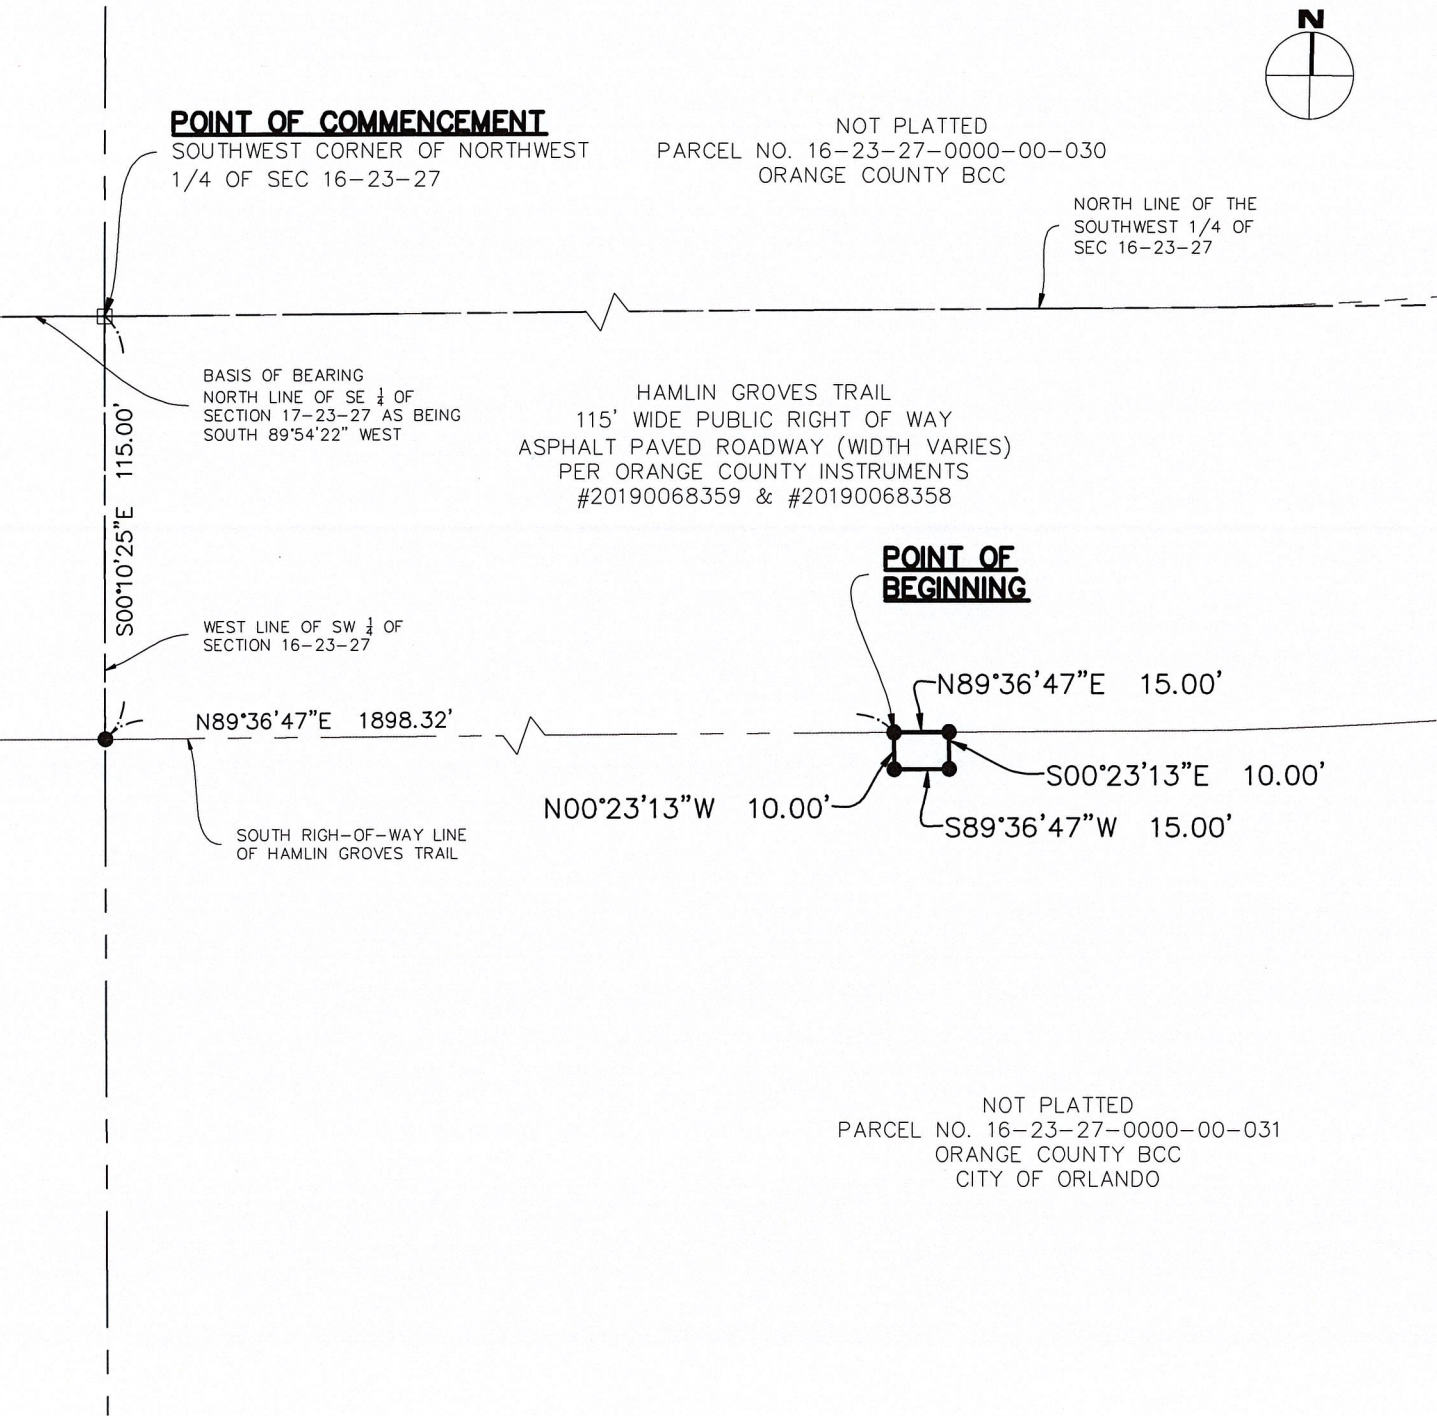 N
POINT OF COMMENCEMENT
SOUTHWEST CORNER OF NORTHWEST
1/4 OF SEC 16-23-27
NOT PLATTED
PARCEL NO. 16-23-27-0000-00-030
ORANGE COUNTY BCC
NORTH LINE OF THE
SOUTHWEST 1/4 OF
SEC 16-23-27
BASIS OF BEARING
NORTH LINE OF SE 1/4 OF
SECTION 17-23-27 AS BEING
SOUTH 89°54'22" WEST
HAMLIN GROVES TRAIL
115' WIDE PUBLIC RIGHT OF WAY
ASPHALT PAVED ROADWAY (WIDTH VARIES)
PER ORANGE COUNTY INSTRUMENTS
#20190068359 & #20190068358
S00°10'25"E 115.00'
POINT OF
BEGINNING
WEST LINE OF SW 1/4 OF
SECTION 16-23-27
N89°36'47"E 15.00'
N89°36'47"E 1898.32'
S00°23'13"E 10.00'
N00°23'13"W 10.00'
S89°36'47"W 15.00'
SOUTH RIGH-OF-WAY LINE
OF HAMLIN GROVES TRAIL
NOT PLATTED
PARCEL NO. 16-23-27-0000-00-031
ORANGE COUNTY BCC
CITY OF ORLANDO